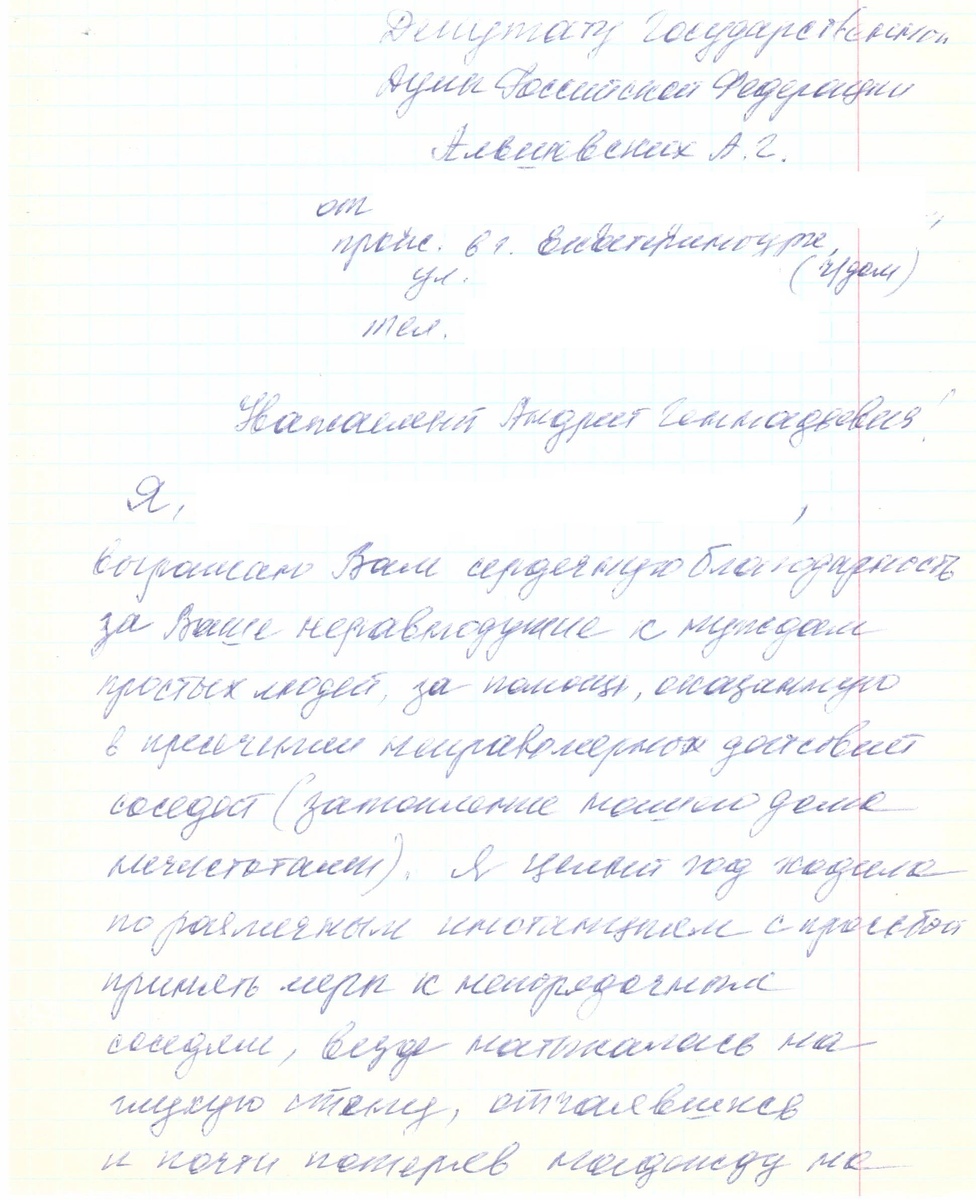 Депутату Государственной
Думы Российской Федерации
Альшевских А.Г.
от
прож. в г. Екатеринбурге,
ул. (ч/дом)
тел.
Уважаемый Андрей Геннадьевич!
Я, ,
выражаю Вам сердечную благодарность
за Ваше неравнодушие к нуждам
простых людей, за помощь, оказанную
в пресечении неправомерных действий
соседей (затопление нашего дома
нечистотами). Я целый год ходила
по различным инстанциям с просьбой
принять меры к непорядочным
соседям, везде натыкалась на
глухую стену, отчаявшись
и почти потеряв надежду на